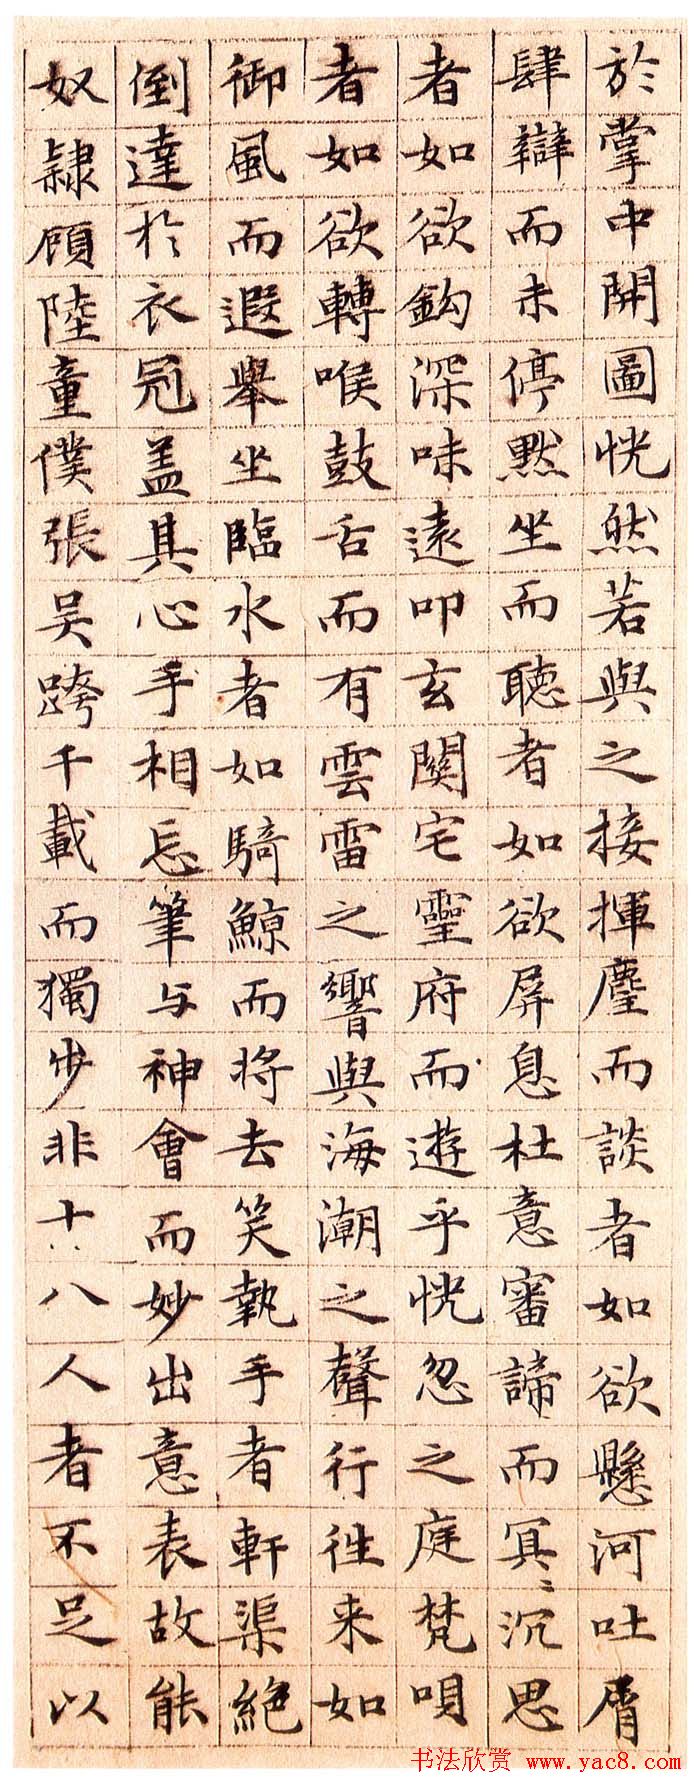 於掌中開圖恍然若與之接揮麈而談者如欲懸河吐屑
肆辯而未停默坐而聽者如欲屏息杜意審諦而冥冥沉思
者如欲鈎深味遠叩玄關宅靈府而遊乎恍忽之庭梵唄
者如欲轉喉鼓舌而有雲雷之響與海潮之聲行徃来如
御風而遐舉坐臨水者如騎鯨而将去笑執手者軒渠絶
倒達於衣冠盖其心手相忘筆与神會而妙出意表故能
奴隷顧陸童僕張吴跨千載而獨步非十八人者不足以
书法欣赏 www.yac8.com